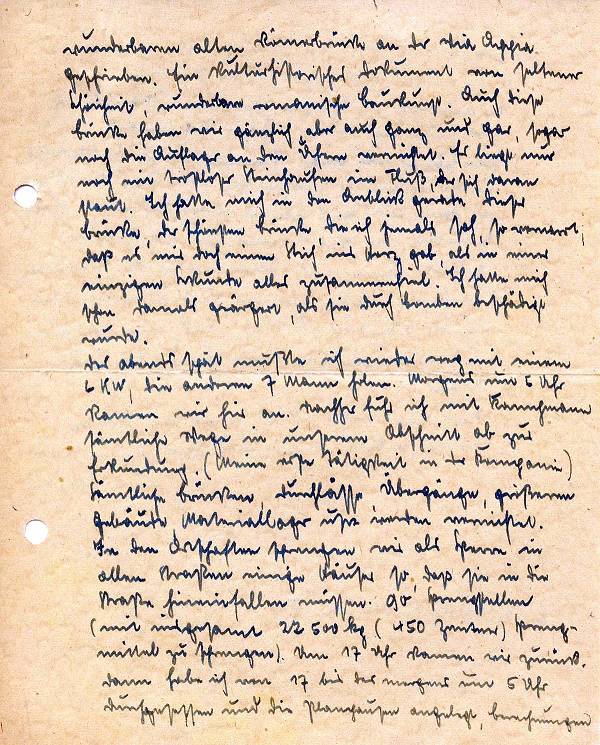 wunderbaren alten Römerbrücke an der Via Appia
geschrieben. Ein kulturhistorisches Dokument von seltener
Schönheit, wunderbare romanische Baukunst. Auch diese
Brücke haben wir gänzlich, aber auch ganz und gar, sogar
noch die Auflager an den Ufern vernichtet. Es liegt nur
noch ein trostloser Steinhaufen im Fluß, der sich daran
staut. Ich hatte mich in den Anblick gerade dieser
Brücke, der schönsten Brücke, die ich jemals sah, so vernarrt,
daß es mir doch einen Stich ins Herz gab, als in einer
einzigen Sekunde alles zusammenfiel. Ich hatte mich
schon damals geärgert, als sie durch Bomben beschädigt
wurde.
Des abends spät mußte ich wieder weg mit einem
LKW, die anderen 7 Mann holen. Morgens um 5 Uhr
kamen wir hier an. Nachher fuhr ich mit
sämtliche Wege in unserem Abschnitt ab zur
Erkundung. (Meine erste Tätigkeit in der Kompanie)
Sämtliche Brücken, Durchlässe, Übergänge, größeren
Gebäude Materiallager usw. werden vernichtet.
In den Ortschaften sprengen wir als Sperre in
allen Straßen einige Häuser so, daß sie in die
Straße hineinfallen müssen. 90 Sprengstellen
(mit insgesamt 22 500 kg (450 Zentner) Spreng-
mittel zu sprengen). Um 17 Uhr kamen wir zurück.
Dann habe ich von 17 bis des morgens um 5 Uhr
durchgesessen und die Planpausen angelegt, Berechnungen